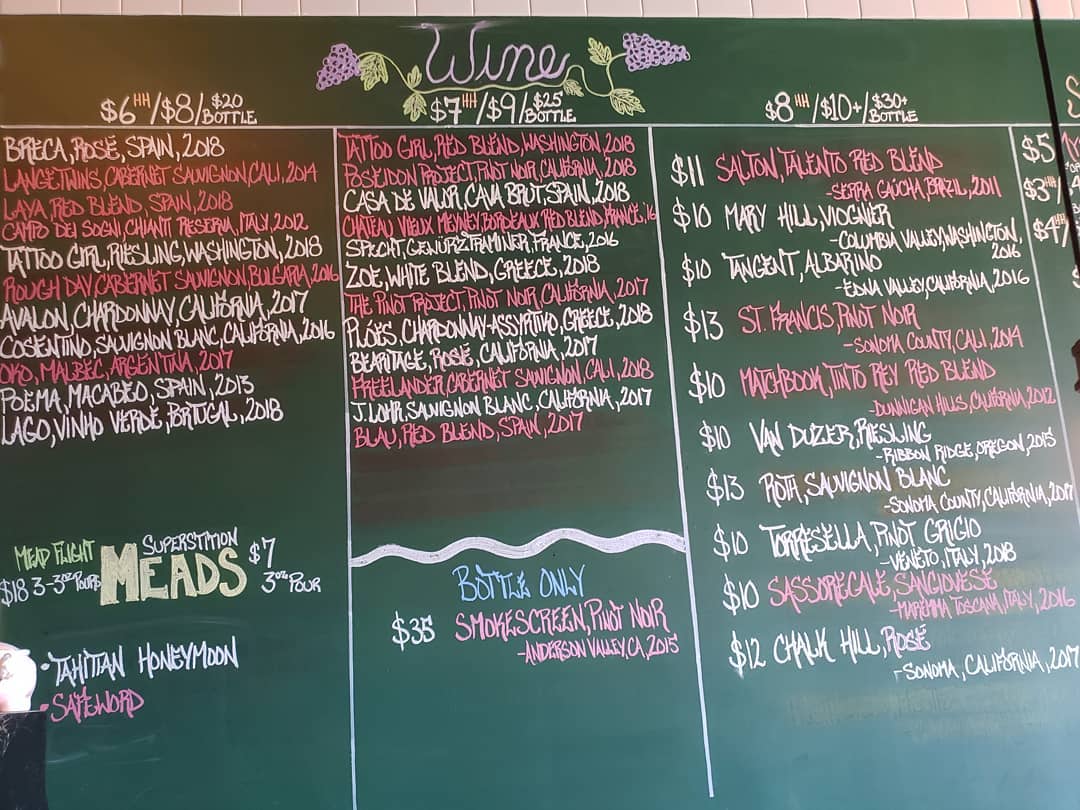 Wine
$6HH/$8/$20 BOTTLE
BRECA, ROSÉ, SPAIN, 2018
LANGETWINS, CABERNET SAUVIGNON, CALI, 2014
LAYA, RED BLEND, SPAIN, 2018
CAMPO DEI SOGNI, CHIANTI RESERVA, ITALY, 2012
TATTOO GIRL, RIESLING, WASHINGTON, 2018
ROUGH DAY, CABERNET SAUVIGNON, BULGARIA, 2016
AVALON, CHARDONNAY, CALIFORNIA, 2017
COSENTINO, SAUVIGNON BLANC, CALIFORNIA, 2016
OKO, MALBEC, ARGENTINA, 2017
POEMA, MACABEO, SPAIN, 2013
LAGO, VINHO VERDE, PORTUGAL, 2018
MEAD FLIGHT
$18 3-3oz POURS
SUPERSTITION
MEADS
$7
3oz POUR
• TAHITIAN HONEYMOON
• SAFEWORD
$7HH/$9/$25 BOTTLE
TATTOO GIRL, RED BLEND, WASHINGTON, 2018
POSEIDON PROJECT, PINOT NOIR, CALIFORNIA, 2018
CASA DE VALOR, CAVA BRUT, SPAIN, 2018
CHATEAU VIEUX MEYNEY, BORDEAUX RED BLEND, FRANCE, 16
SPECHT, GEWURZTRAMINER, FRANCE, 2016
ZOE, WHITE BLEND, GREECE, 2018
THE PINOT PROJECT, PINOT NOIR, CALIFORNIA, 2017
PLÓES, CHARDONNAY-ASSYRTIKO, GREECE, 2018
BEARITAGE, ROSÉ, CALIFORNIA, 2017
FREELANDER, CABERNET SAUVIGNON, CALI, 2018
J. LOHR, SAUVIGNON BLANC, CALIFORNIA, 2017
BLAU, RED BLEND, SPAIN, 2017
BOTTLE ONLY
$35 SMOKESCREEN, PINOT NOIR
-ANDERSON VALLEY, CA, 2015
$8HH/$10+/$30+ BOTTLE
$11 SALTON, TALENTO RED BLEND
-SERRA GAÚCHA, BRAZIL, 2011
$10 MARY HILL, VIOGNIER
-COLUMBIA VALLEY, WASHINGTON,
2016
$10 TANGENT, ALBARINO
-EDNA VALLEY, CALIFORNIA, 2016
$13 ST. FRANCIS, PINOT NOIR
-SONOMA COUNTY, CALI, 2014
$10 MATCHBOOK, TINTO REY RED BLEND
-DUNNIGAN HILLS, CALIFORNIA, 2012
$10 VAN DUZER, RIESLING
-RIBBON RIDGE, OREGON, 2015
$13 ROTH, SAUVIGNON BLANC
-SONOMA COUNTY, CALIFORNIA, 2017
$10 TORRESELLA, PINOT GRIGIO
-VENETO, ITALY, 2018
$10 SASSOREGALE, SANGIOVESE
-MAREMMA TOSCANA, ITALY, 2016
$12 CHALK HILL, ROSÉ
-SONOMA, CALIFORNIA, 2017
$5
$3HH
$4HH/